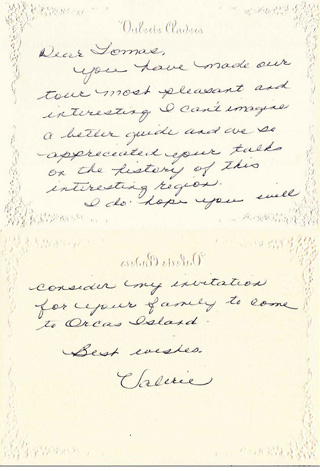 Dear Tomas,
you have made our
tour most pleasant and
interesting I can't imagine
a better guide and we so
appreciated your talks
on the history of this
interesting region.
I do hope you will
consider my invitation
for your family to come
to Orcas Island.
Best wishes
Valerie